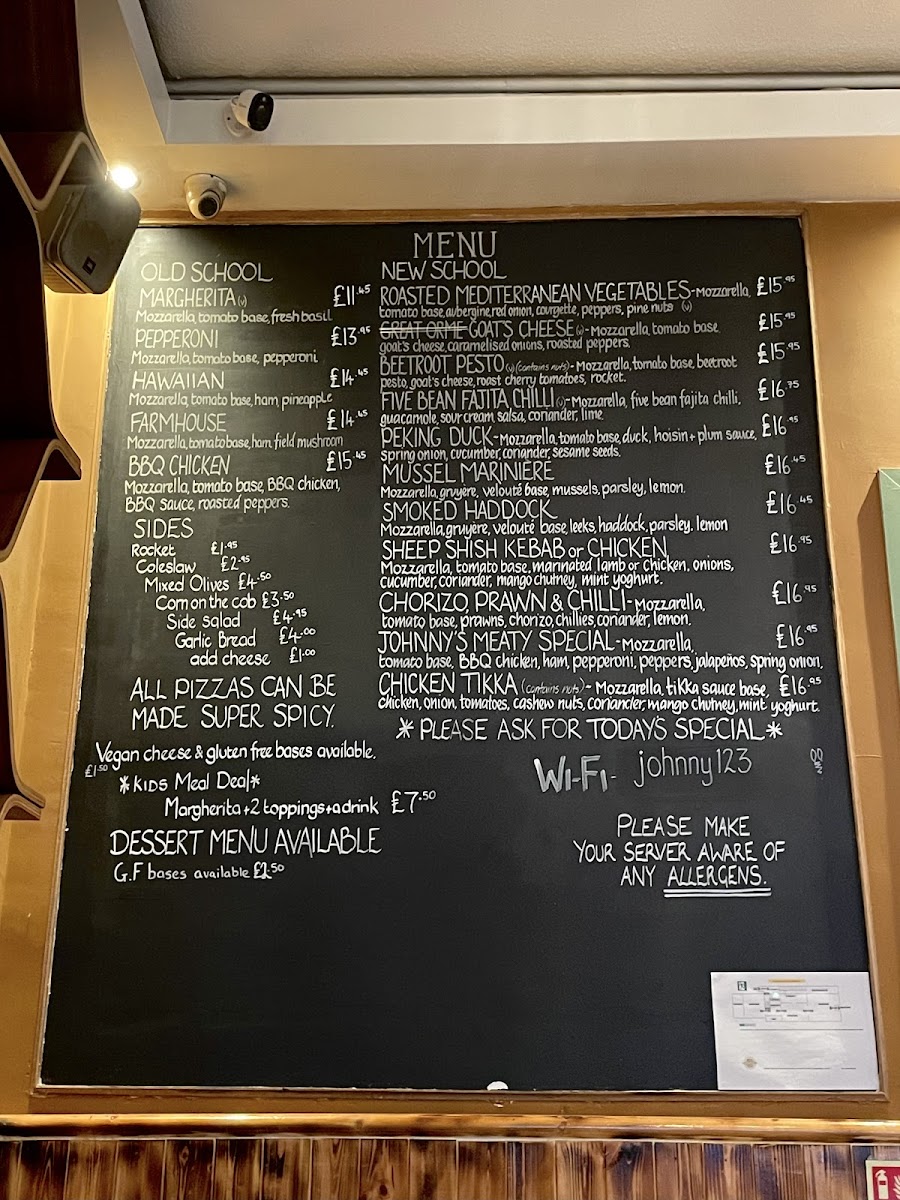 MENU
OLD SCHOOL
MARGHERITA (v) £11.45
Mozzarella, tomato base, fresh basil
PEPPERONI £13.95
Mozzarella, tomato base, pepperoni
HAWAIIAN £14.45
Mozzarella, tomato base, ham, pineapple
FARMHOUSE £14.45
Mozzarella, tomato base, ham, field mushroom
BBQ CHICKEN £15.45
Mozzarella, tomato base, BBQ chicken,
BBQ sauce, roasted peppers.
SIDES
Rocket £1.95
Coleslaw £2.95
Mixed Olives £4.50
Corn on the cob £3.50
Side salad £4.95
Garlic Bread £4.00
add cheese £1.00
ALL PIZZAS CAN BE
MADE SUPER SPICY.
Vegan cheese & gluten free bases available.
£1.50
*KIDS Meal Deal*
Margherita + 2 toppings + a drink £7.50
DESSERT MENU AVAILABLE
G.F bases available £2.50
NEW SCHOOL
ROASTED MEDITERRANEAN VEGETABLES - Mozzarella, £15.95
tomato base, aubergine, red onion, courgette, peppers, pine nuts (v)
GREAT ORME GOAT'S CHEESE (v) - Mozzarella, tomato base, £15.95
goat's cheese, caramelised onions, roasted peppers.
BEETROOT PESTO (v) (contains nuts) - Mozzarella, tomato base, beetroot £15.95
pesto, goat's cheese, roast cherry tomatoes, rocket.
FIVE BEAN FAJITA CHILLI (v) - Mozzarella, five bean fajita chilli, £16.75
guacamole, sour cream, salsa, coriander, lime
PEKING DUCK - Mozzarella, tomato base, duck, hoisin + plum sauce, £16.95
spring onion, cucumber, coriander, sesame seeds.
MUSSEL MARINIÈRE £16.45
Mozzarella, gruyère, velouté base, mussels, parsley, lemon.
SMOKED HADDOCK £16.45
Mozzarella, gruyère, velouté base, leeks, haddock, parsley, lemon
SHEEP SHISH KEBAB or CHICKEN £16.95
Mozzarella, tomato base, marinated lamb or chicken, onions,
cucumber, coriander, mango chutney, mint yoghurt.
CHORIZO, PRAWN & CHILLI - Mozzarella, £16.95
tomato base, prawns, chorizo, chillies, coriander, lemon.
JOHNNY'S MEATY SPECIAL - Mozzarella, £16.95
tomato base, BBQ chicken, ham, pepperoni, peppers, jalapeños, spring onion.
CHICKEN TIKKA (contains nuts) - Mozzarella, tikka sauce base, £16.95
chicken, onion, tomatoes, cashew nuts, coriander, mango chutney, mint yoghurt.
*PLEASE ASK FOR TODAY'S SPECIAL*
WI-FI - johnny123
PLEASE MAKE
YOUR SERVER AWARE OF
ANY ALLERGENS.